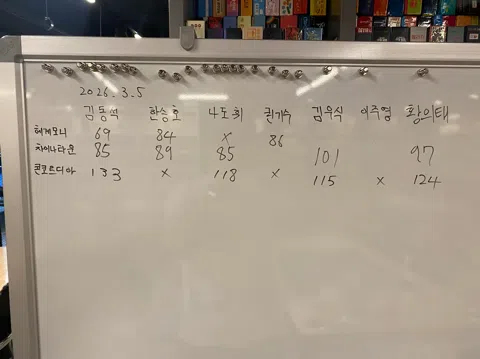 2026.3.5
김동석 한승호 나도희 권기수 김우식 이주영 황의태
헤게모니 69 84 x 86
차이나타운 85 89 85 101 97
콘코르디아 133 x 118 x 115 x 124